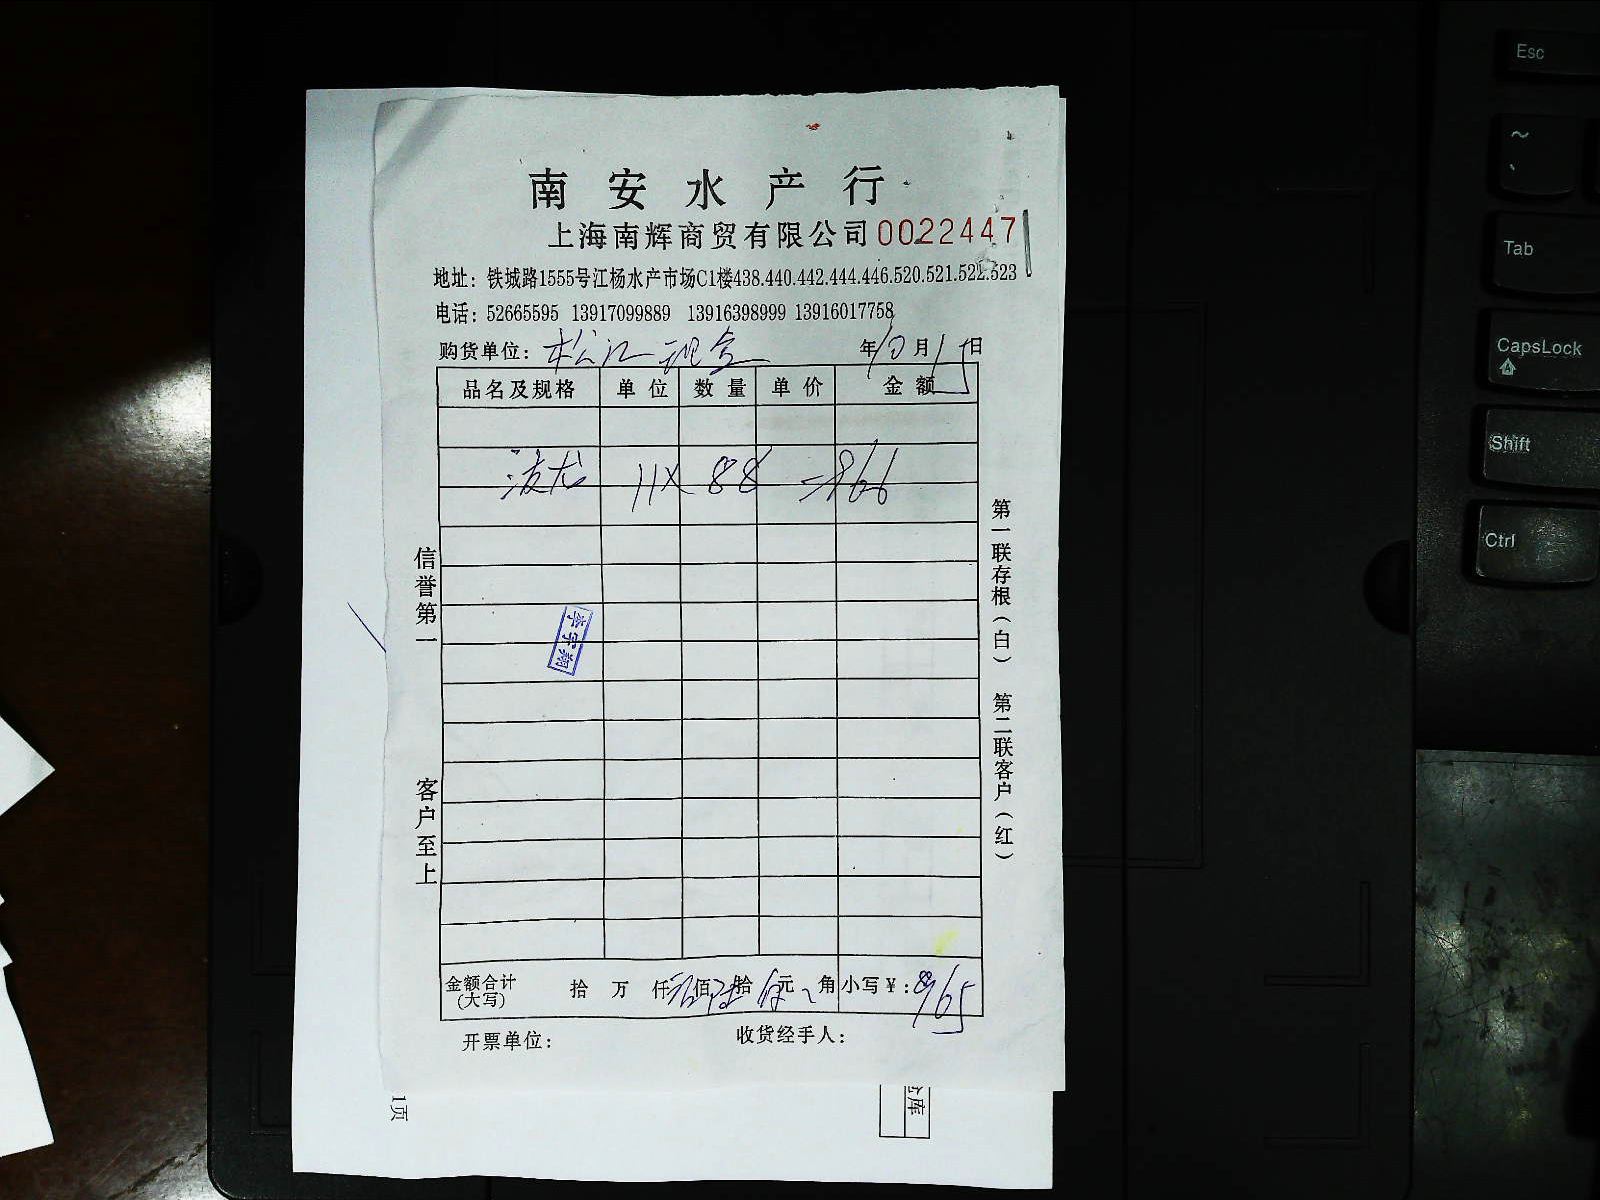 南安水产行
上海南辉商贸有限公司 0022447
地址：铁城路1555号江杨水产市场C1楼438.440.442.444.446.520.521.522.523
电话：52665595 13917099889 13916398999 13916017758
购货单位：松江现金 年10月15日
品名及规格 单位 数量 单价 金额
11X 88 =966
信誉第一
客户至上
李宇翔
第一联存根（白） 第二联客户（红）
金额合计（大写） 拾 万 仟 佰 拾 元 角 小写￥：965
开票单位： 收货经手人：
1页
仓库
Esc
~
Tab
CapsLock
Shift
Ctrl